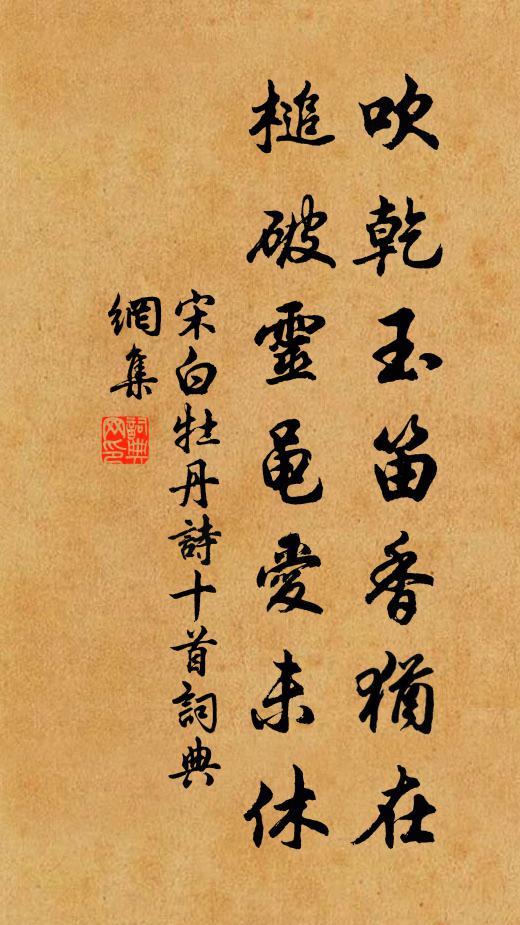 吹乾玉笛香猶在
槌破靈黽愛未休
宋白牡丹詩十首詞典
網集
詞典
网印